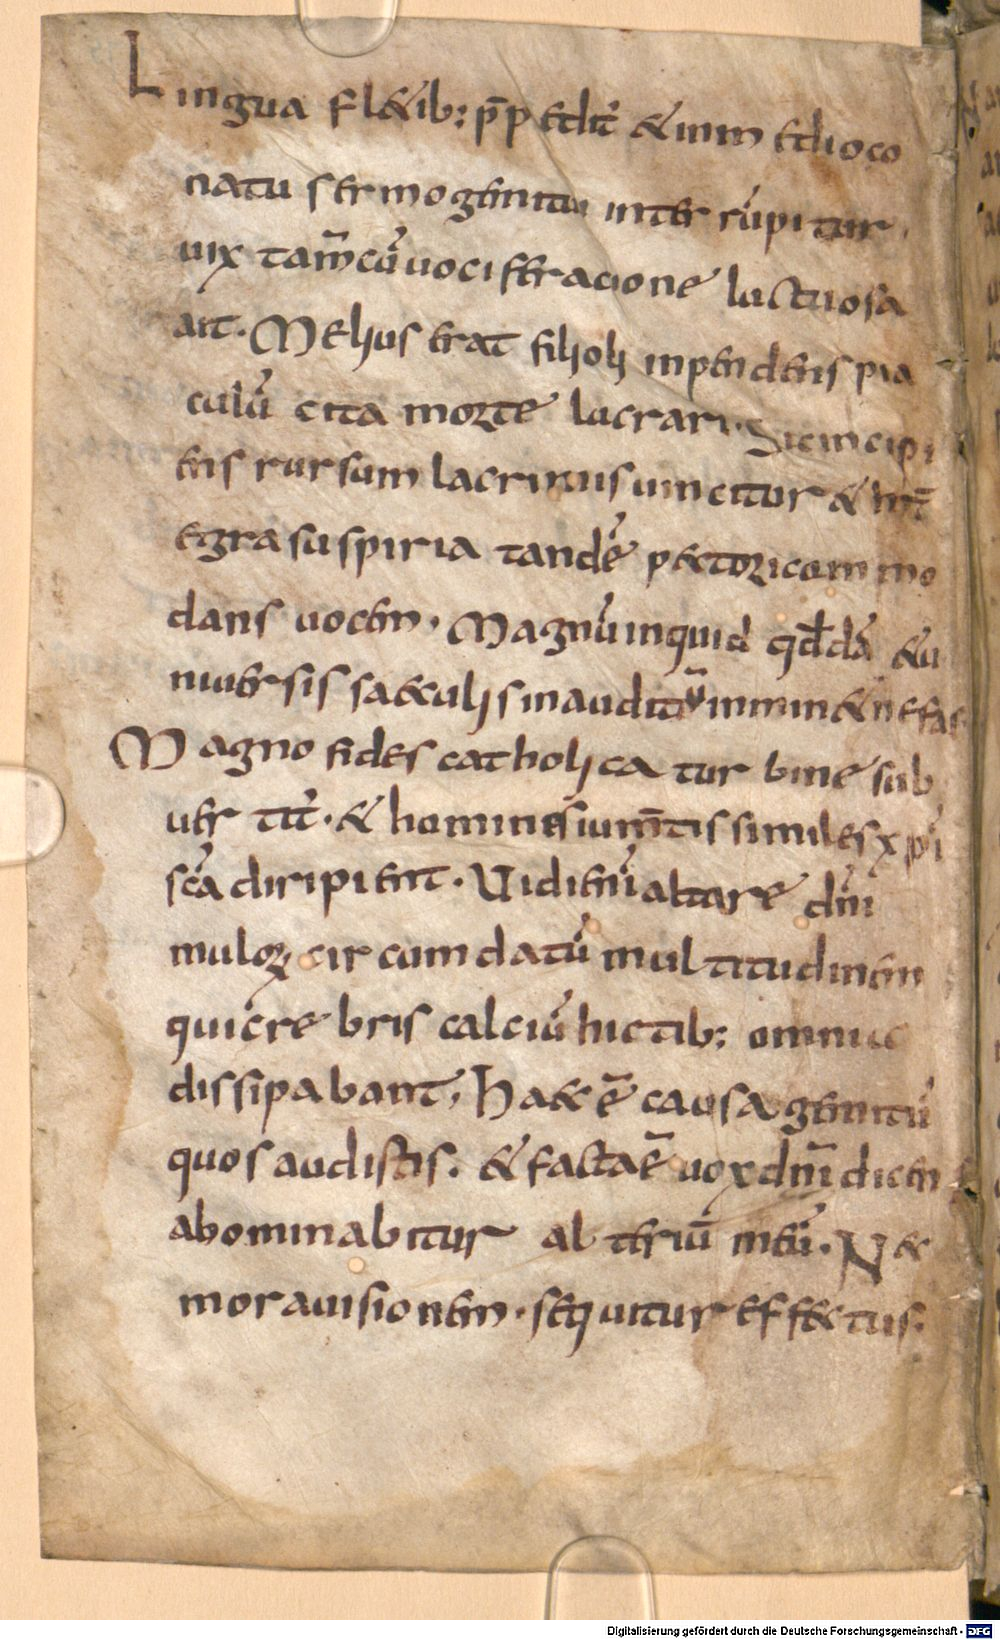 Lingua fl&ib; p̄pedit̄ & inmedio co
natu sermo gemitu interrūpitur.
uix tam̄ cū uociferacione luctuosa
ait. Melius erat filioli inpendens pia
culū cita morte lucrari. Sic incipi
ens rursum lacrimis uincitur & in̄t
egra suspiria tandē p&tori commo
dans uocem. Magnū inquid qđdā & u
niuersis saeculis inauditū inmin& nefas
Magno fides catholica turbine sub
uertit̄. & homines ium̄tis similes xp̄i
sc̄a diripient. Uidi enī altare dn̄i
mulorꝝ circumdatū multitudinem
qui crebris calciū hictib; omnia
dissipabant, Ha& ē causa gemitū
quos audistis. & facta ē uox dn̄i dicen
abominabitur alteriū meū. N&
mora uisionem. sequitur effectus.
Digitalisierung gefördert durch die Deutsche Forschungsgemeinschaft - DFG